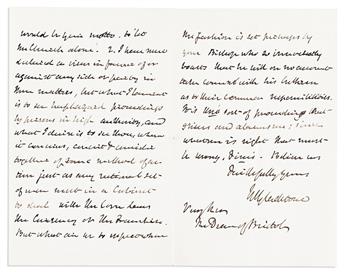 would be your motto: to let
the Church alone. 2. I have never
uttered a view in favour of or
against any side or party in
these matters, but what I lament
is to see haphazard proceedings
by persons in high authority, and
what I desire is to see those, whom
it concerns, concert & consider
together of some method of action
just as any rational set
of men meet in a Cabinet
to deal with the Corn Laws
the Currency or the Franchise.
But what are we to expect when
the fashion is set perhaps by
your Bishop who as immediately
boasts that he will on no account
take counsel with his brethren
as to their common responsibilities.
It is this sort of proceeding that
grieves and alarms me: 
whoever is right that must
be wrong.
faithfully yours
WE Gladstone
Very Rev
The Dean of Bristol